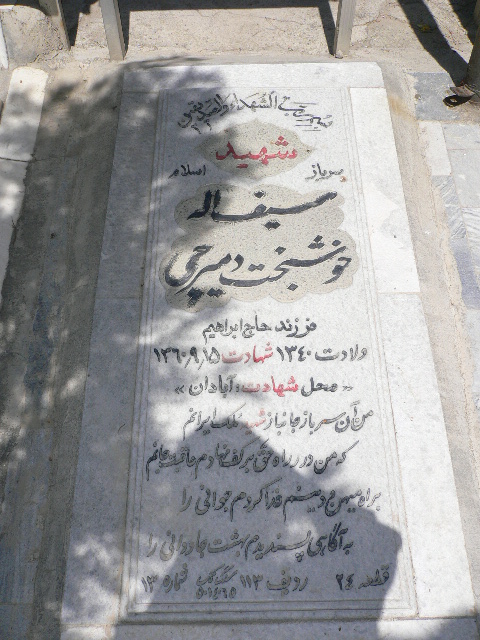 بسم رب الشهداء والصدیقین
شهید
سرباز اسلام
سیف اله
خوشبخت دمیرچی
فرزند حاج ابراهیم
ولادت ۱۳۴۰ شهادت ۱۳۶۰٫۹٫۱۵
« محل شهادت: آبادان »
من آن سرباز جانباز شهید ملک ایرانم
که من در راه حق سر بنهادم عاقبت جانم
براه میهن و دینم فدا کردم جوانی را
به آگاهی پسندیدم بهشت جاودانی را
قطعه ۲۴ ردیف ۱۱۳ شماره ۱۳